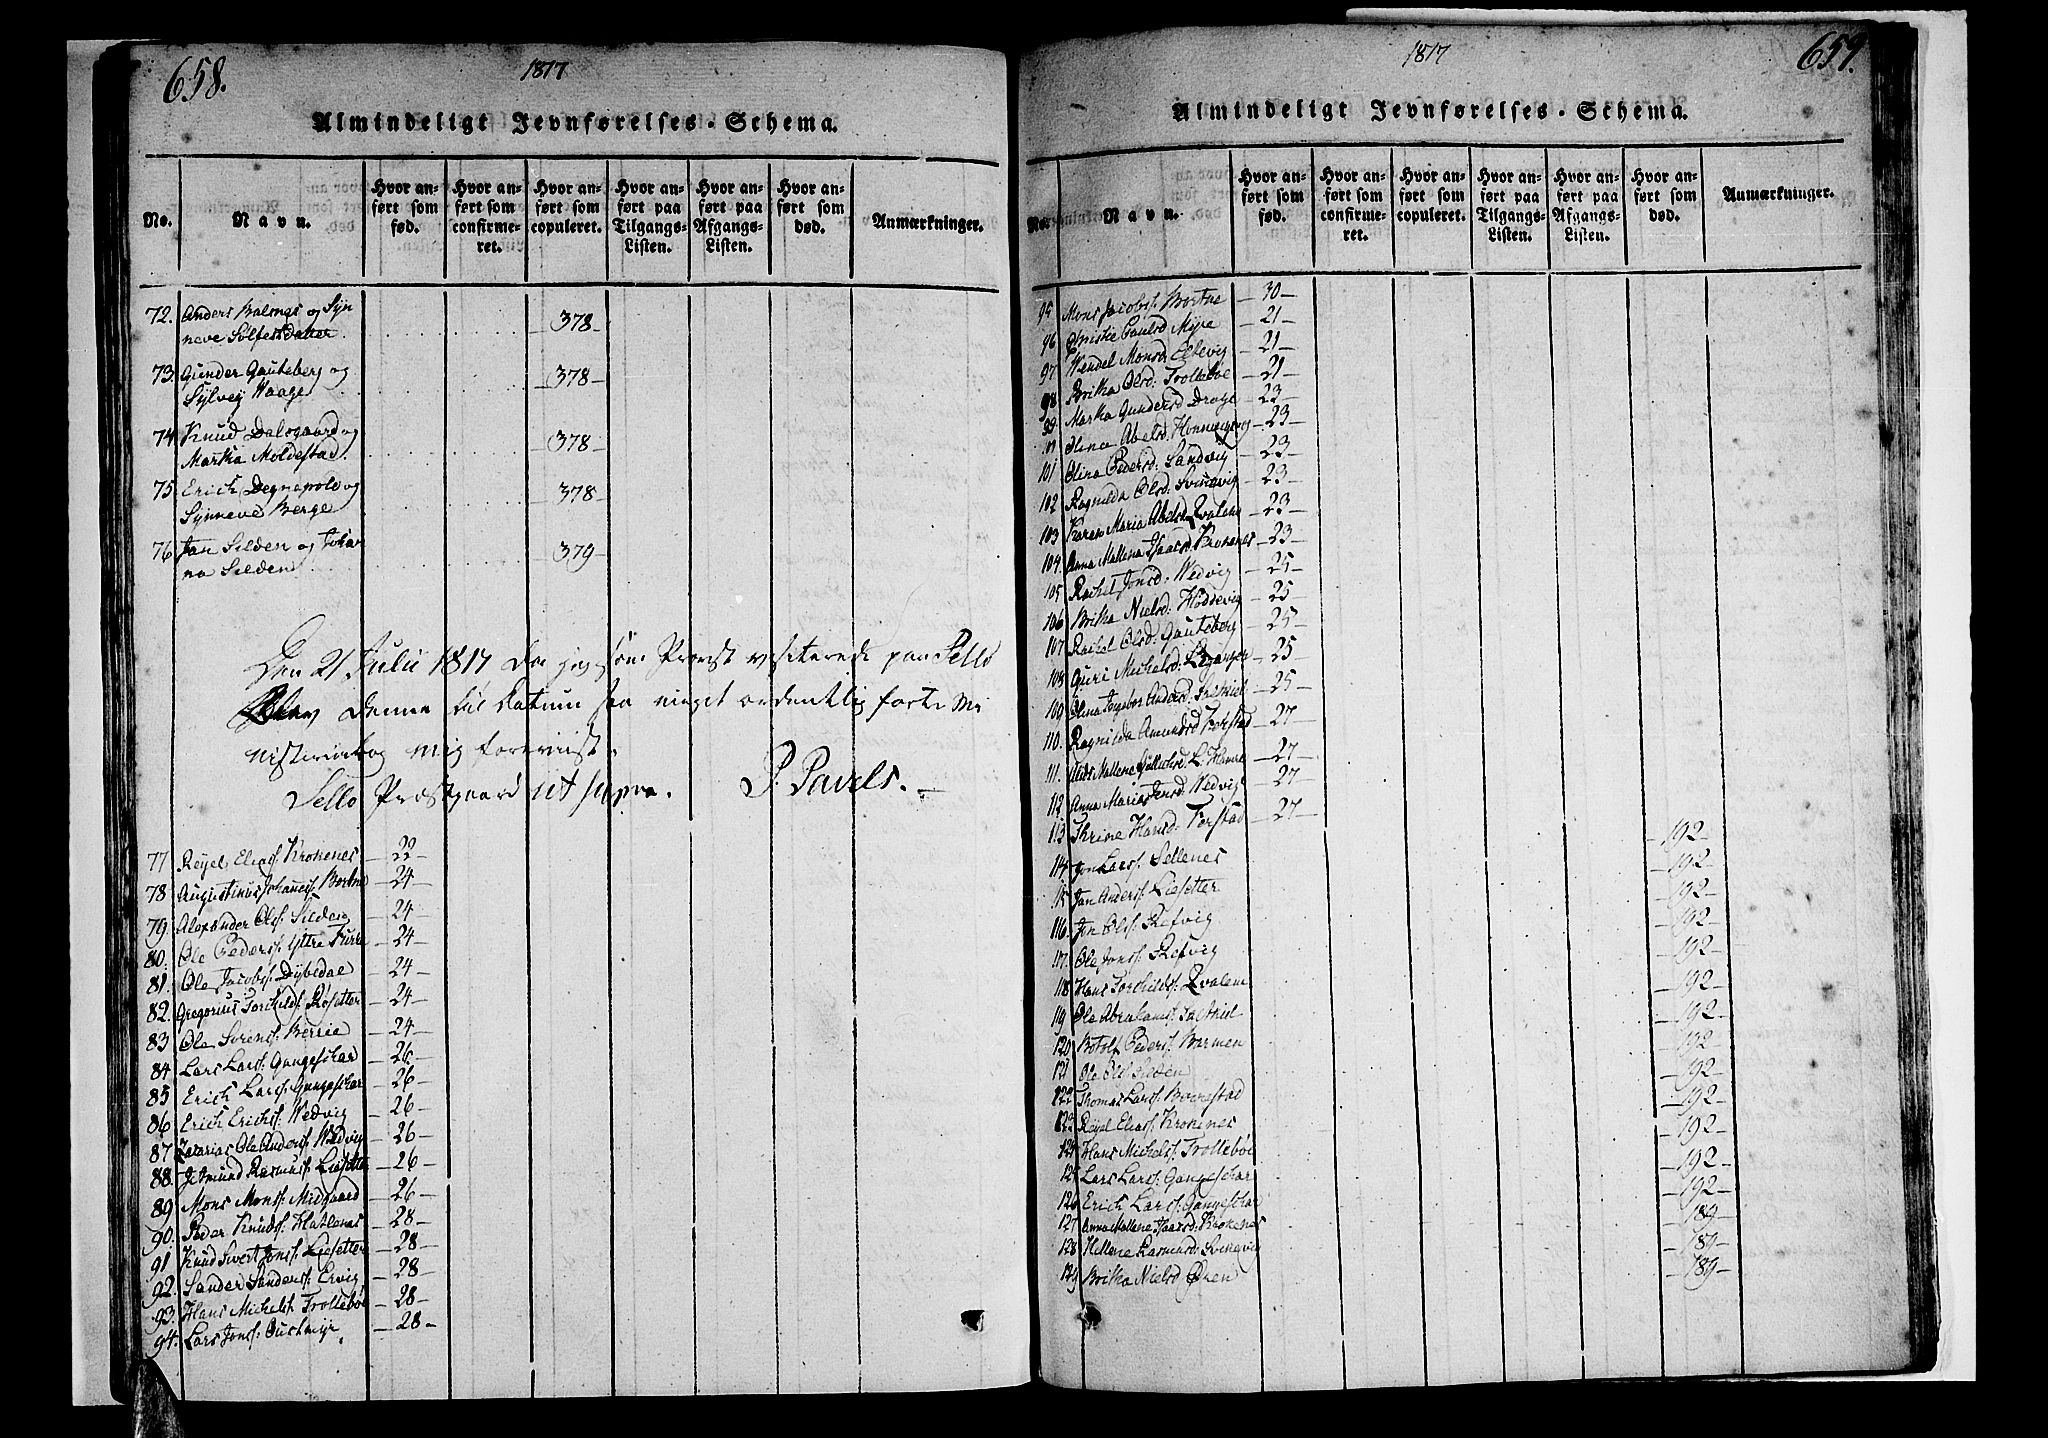 658.
1817
Almindeligt Jevnførelses-Schema.
No. Navn. Hvor anført som fød. Hvor anført som confirmeret. Hvor anført som copuleret. Hvor anført paa Tilgangs-Listen. Hvor anført paa Afgangs-Listen. Hvor anført som død. Anmærkninger.
72. Anders Balsnes og Syn
neve Sølfestdatter. -378-
73. Gunder Gauteberg og
Sylvej Haage -378-
74. Knud Dalsgaard og
Martha Moldestad. -378-
75. Erich Degnepold og
Synneve Berge -378-
76. Jan Silden og Johan
na Silden -379-
Den 21 Julii 1817 da jeg som Provst visiterede paa Sello
blev denne til Datum saa meget ordentligførte Mi
nisterialbog mig foreviist.
Sello Præstgaard ut supra. P. Pavels.
77 Reyel Eliass: Krokenes -22-
78 Augustinus Johannes: Bortne -24-
79 Alexander Ols: Silden -24-
80. Ole Peders: Yttre Furre -24-
81. Ole Jacobs: Dybedal -24-
82. Gregorius Torchilds: Røsetter -24-
83 Ole Sørens: Berrie -24-
84 Lars Lars: Gangeschar -26-
85 Erich Lars: Gangeschar -26-
86 Erich Erichs: Nedvig -26-
87 Zacarias Ole Anders: Nedvig -26-
88. Jetmund Rasmus: Liesetter -26-
89 Mons Mons: Midgaard -26-
90. Peder Knuds: Hatlenes -28-
91 Knud Sivert Jons: Liesetter -28-
92. Sander Sanders: Ervig -28-
93. Hans Michels: Trollebøe -28-
94. Lars Jons: Oustmyr -28-
659.
1817
Almindeligt Jevnførelses-Schema.
No. Navn. Hvor anført som fød. Hvor anført som confirmeret. Hvor anført som copuleret. Hvor anført paa Tilgangs-Listen. Hvor anført paa Afgangs-Listen. Hvor anført som død. Anmærkninger.
95 Mons Jacobs: Bortne -30-
96 Christie Paulsd Myre -21-
97 Wendel Monsd Eltevig -21-
98 Britha Olsd: Trollebøe -21-
99 Martha Gundersd Drage -23-
Olina Abelsd: Honningsvog -23-
101 Olina Pedersd: Sandvig -23-
102 Ragnilda Olsd: Svinevig -23-
103 Karen Maria Abelsd Qvalem -23-
104. Anna Mallena Isaacsd Krokenes -23-
105 Rachel Jonsd: Nedvig -25-
106 Britha Nielsd: Hoddevig -25-
107 Rachel Olsd Gauteberg -25-
108 Guri Michelsd: Leganger -25-
109 Olina Ingebor Andersd -25-
110. Ragnilda Amundsd Torstad -27-
111. Mallene L. Hamre -27-
112 Anna Maria Jensd: Nedvig -27-
113 Thrine Hansd: Torstad -27-
114 Jon Lars: Sellenes -192-
115 Jan Anders: Liesetter -192-
116. Jon Ols: Refvig -192-
117. Ole Jons: Refvig -192-
118 Hans Torchilds: Qvalem -192-
119 Ole Abrahams: -192-
120 Botolf Peders: Barmen -192-
121 Ole Ols: Silden -192-
122 Thomas Lars: Borrestad -192-
123 Reyel Elias: Krokenes -192-
124 Hans Michels: Trollebøe -192-
125 Lars Lars: Gangeschar -192-
126 Erich Lars: Gangeschar -192-
127 Anna Mallene Isaacsd: Krokenes -189-
128 Hellene Rasmusd: Svinevig -189-
129 Britha Nielsd Øren -189-